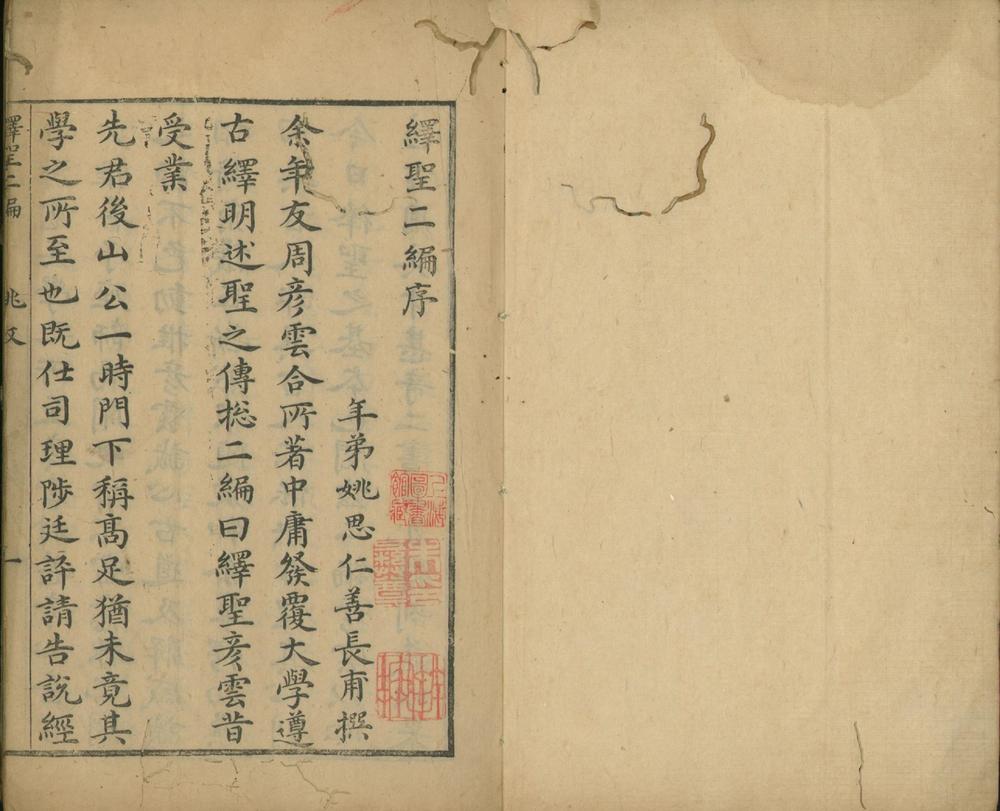 繹聖二編序
年弟姚思仁善長甫撰
余年友周彦雲合所著中庸發覆大學遵
古繹明述聖之傳捴二編曰繹聖彦雲昔
受業
先君後山公一時門下稱髙足猶未竟其
學之所至也既仕司理陟廷評請告說經
繹聖二編 姚叙 一
上海圖書館藏